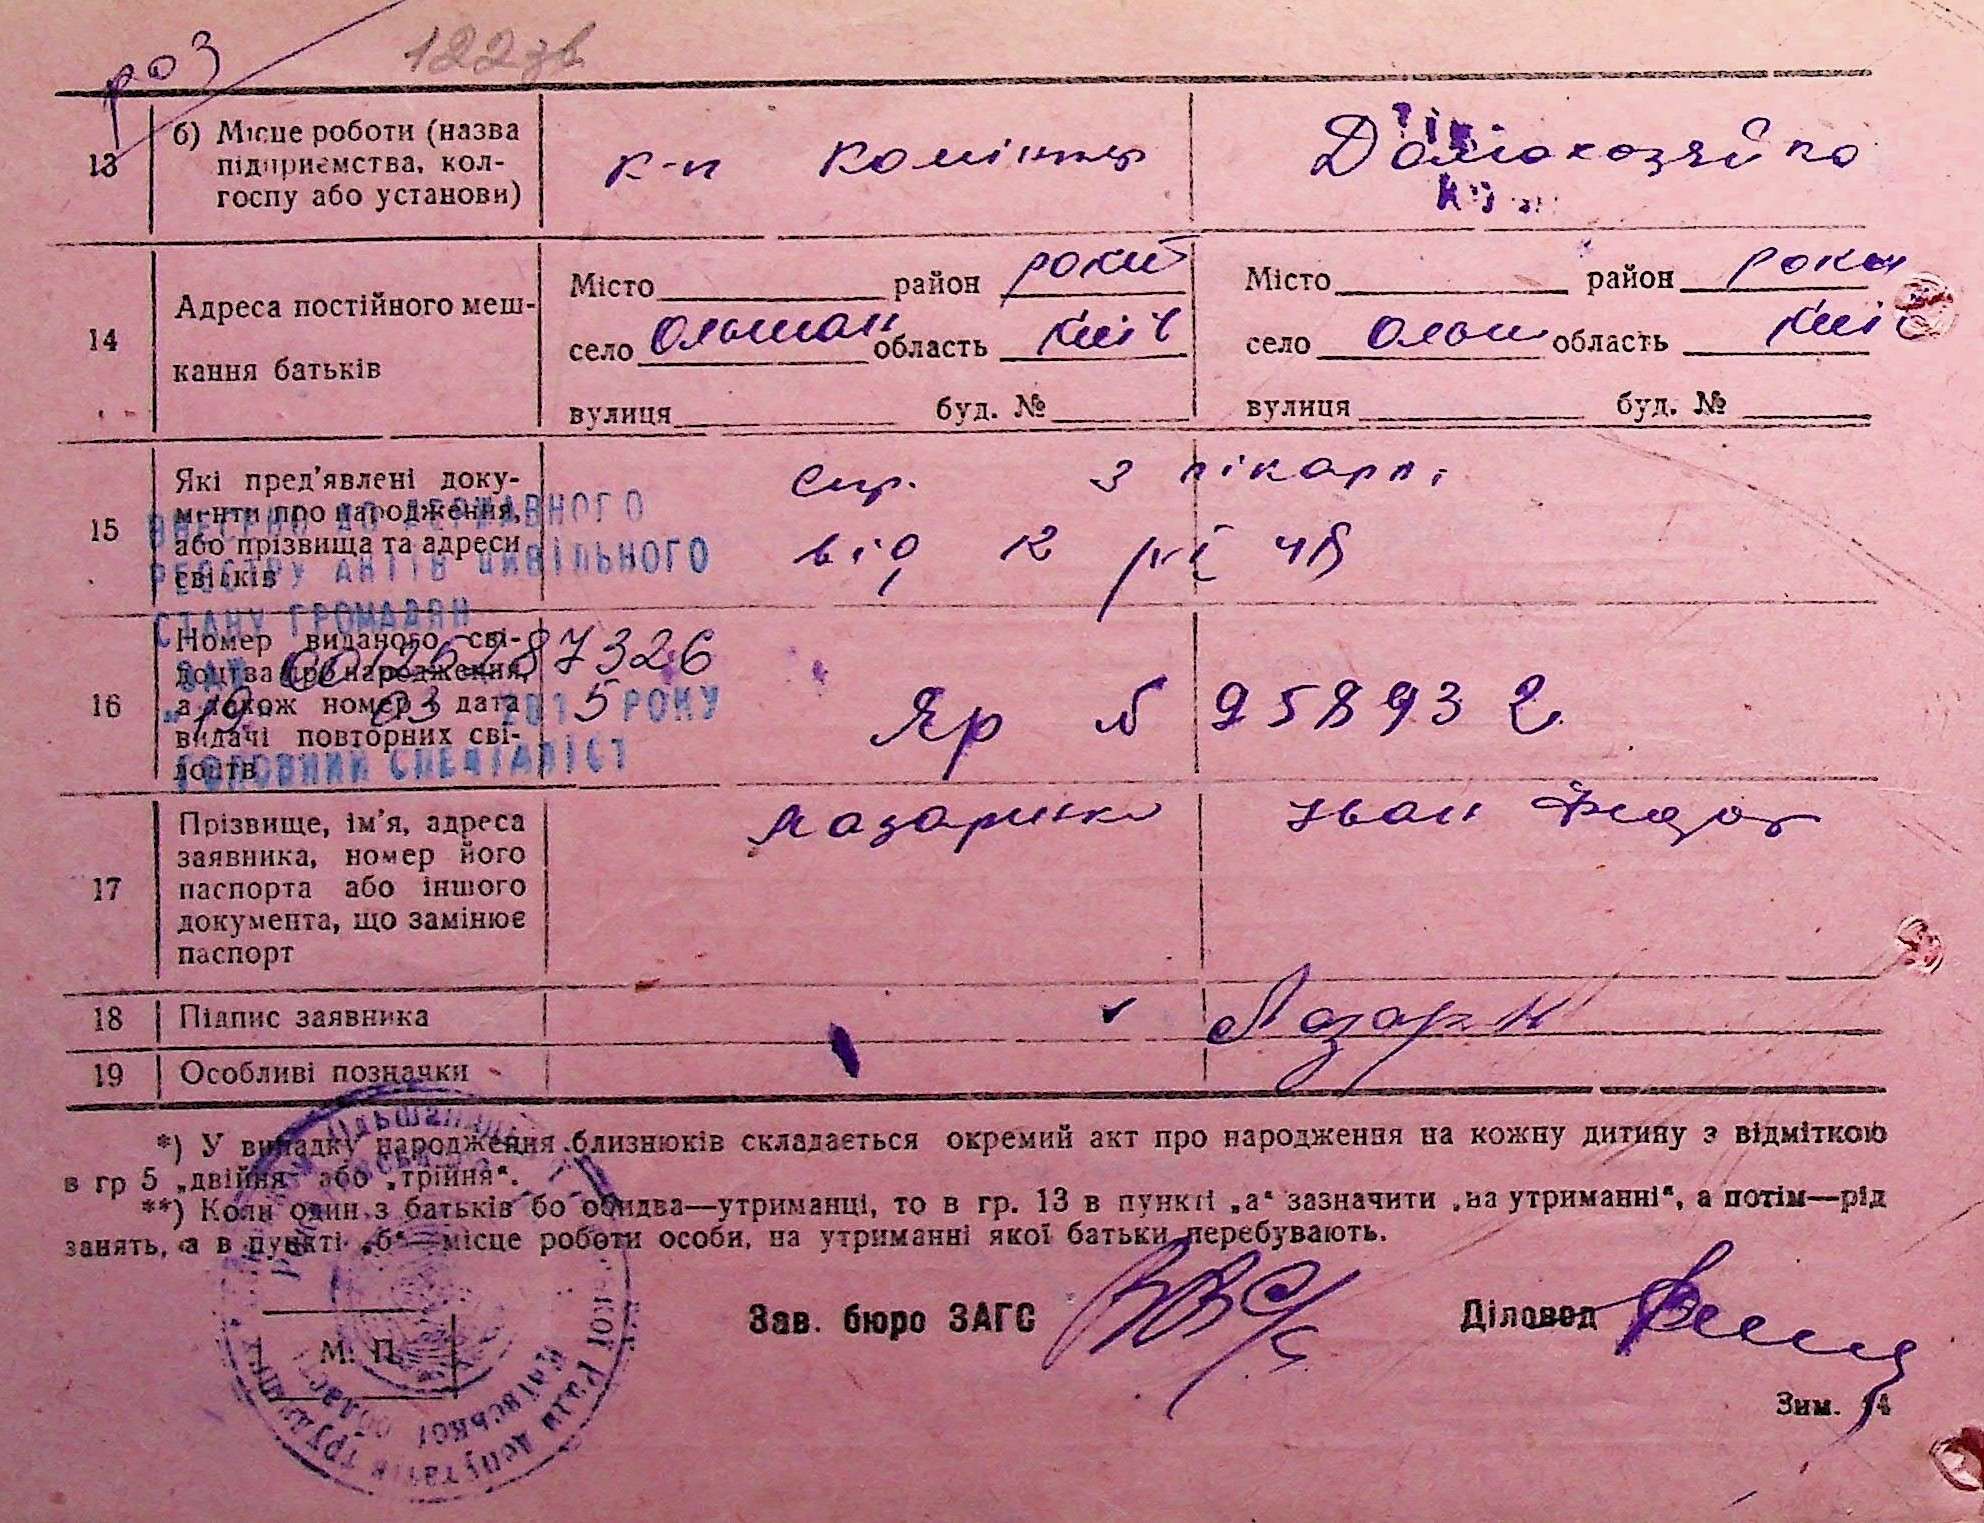 роз
122 зв
13 б) Місце роботи (назва
підприємства, кол-
госпу або установи)
к-п Комінтер
Домохозяйка
14 Адреса постійного меш-
кання батьків
Місто район рокит
село Ольшан область Київ
вулиця буд. №
Місто район роки
село Ольш область Київ
вулиця буд. №
15 Які пред'явлені доку-
менти про народження,
або прізвища та адреси
свідків
спр. з лікарні
від 12
ВНЕСЕНО ДО ДЕРЖАВНОГО
РЕЄСТРУ АКТІВ ЦИВІЛЬНОГО
СТАНУ ГРОМАДЯН
ЗА № 00126287326
"19" 03 2015 РОКУ
ГОЛОВНИЙ СПЕЦІАЛІСТ
16 Номер виданого сві-
доцтва про народження,
а також номер і дата
видачі повторних сві-
доцтв
Яр № 958932
17 Прізвище, ім'я, адреса
заявника, номер його
паспорта або іншого
документа, що замінює
паспорт
Лазаринко Іван Федор
18 Підпис заявника
Лазарн
19 Особливі позначки
*) У випадку народження близнюків складається окремий акт про народження на кожну дитину з відміткою
в гр 5 „двійня" або „трійня".
**) Коли один з батьків бо обидва—утриманці, то в гр. 13 в пункті „а" зазначити „на утриманні", а потім—рід
занять, а в пункті „б"—місце роботи особи, на утриманні якої батьки перебувають.
Зав. бюро ЗАГС
Діловод
М. П.
Київської області
Ради депутатів трудящих
Зим. 14